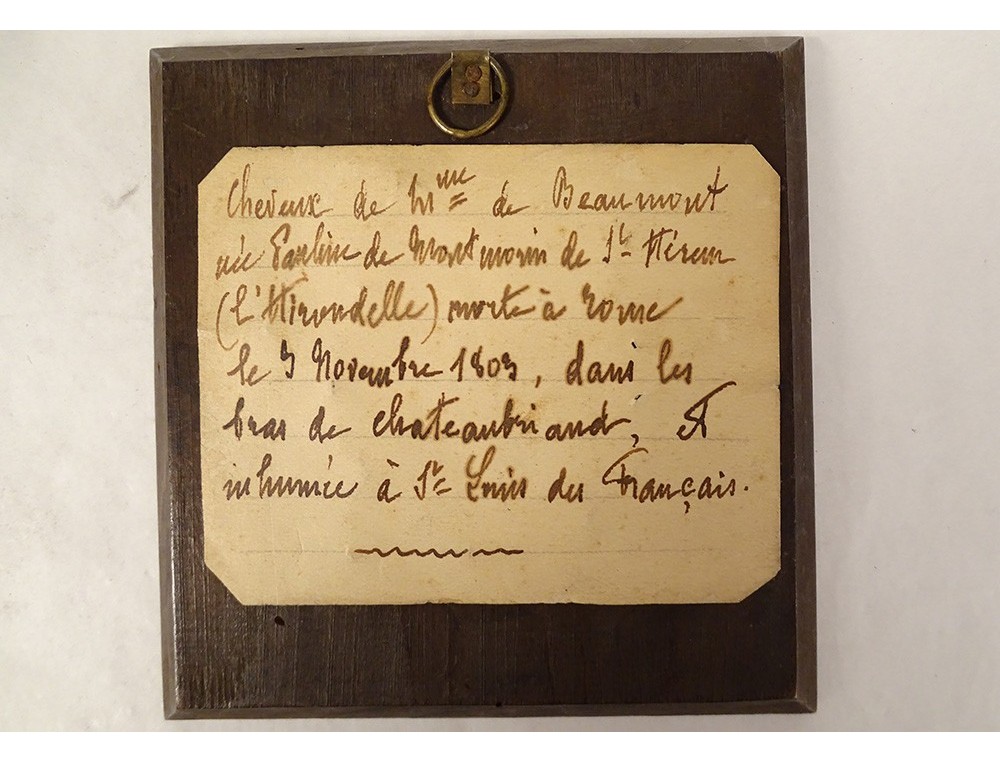 Cheveux de Mme de Beaumont
née Pauline de Montmorin de St Hérem
(L'Hirondelle) morte à Rome
le 3 Novembre 1803, dans les
bras de Chateaubriand, et
inhumée à St Louis des Français.